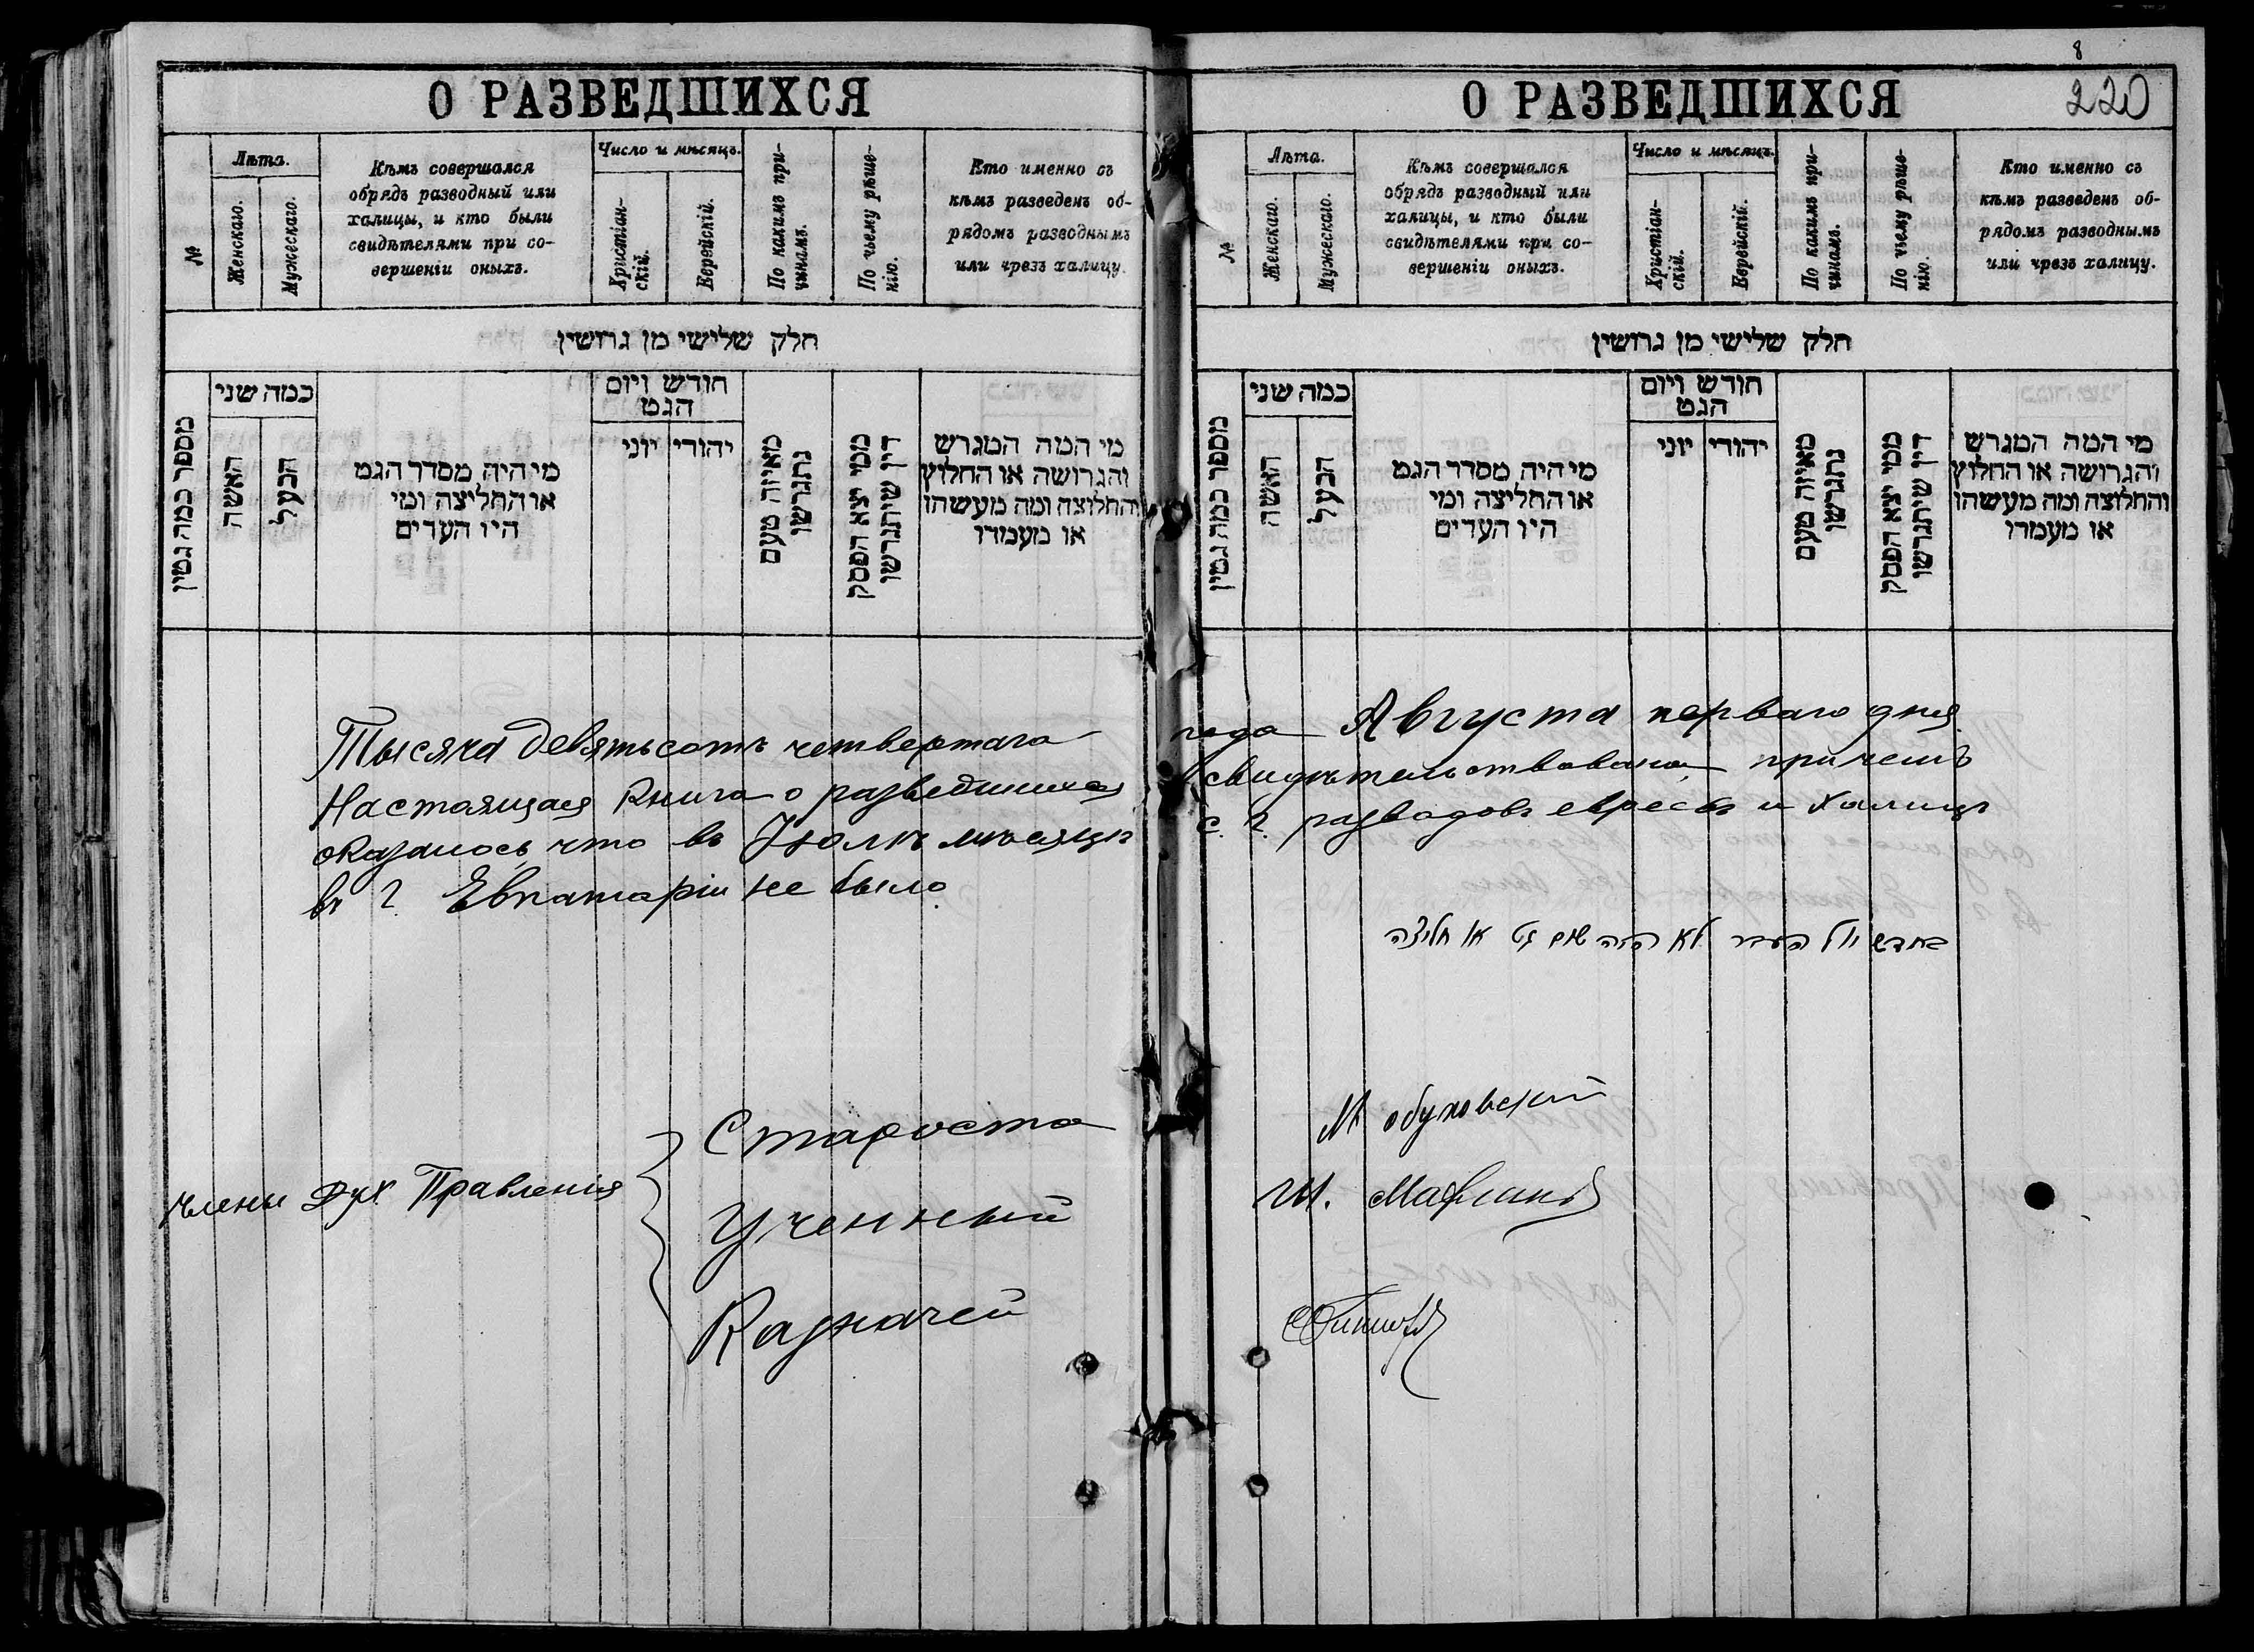 О РАЗВЕДШИХСЯ
№
Лѣта.
Женскаго.
Мужескаго.
Кѣмъ совершался
обрядъ разводный или
халицы, и кто были
свидѣтелями при со-
вершеніи оныхъ.
Число и мѣсяцъ.
Христіан-
скій.
Еврейскій.
По какимъ при-
чинамъ.
По чьему рѣше-
нію.
Кто именно съ
кѣмъ разведенъ об-
рядомъ разводнымъ
или чрезъ халицу.
חלק שלישי מן גרושין
מספר כמה גטין
כמה שני
האשה
הבעל
מי היה מסדר הגט
או החליצה ומי
היו העדים
חודש ויום
הגט
יהודי
יוני
מאיזה טעם
נתגרשו
ממי יצא הפסק
דין שיתגרשו
מי המה המגרש
והגרושה או החלוץ
והחלוצה ומה מעשהו
או מעמדו
Тысяча девятьсотъ четвертаго
Настоящая Книга о разведшихся
оказалось, что въ Юлѣ мѣсяцѣ
въ г. Евпаторіи не было.
Члены Дух Правленія
Староста
Ученный
Казначей
8
220
О РАЗВЕДШИХСЯ
№
Лѣта.
Женскаго.
Мужескаго.
Кѣмъ совершался
обрядъ разводный или
халицы, и кто были
свидѣтелями при со-
вершеніи оныхъ.
Число и мѣсяцъ.
Христіан-
скій.
Еврейскій.
По какимъ при-
чинамъ.
По чьему рѣше-
нію.
Кто именно съ
кѣмъ разведенъ об-
рядомъ разводнымъ
или чрезъ халицу.
חלק שלישי מן גרושין
מספר כמה גטין
כמה שני
האשה
הבעל
מי היה מסדר הגט
או החליצה ומי
היו העדים
חודש ויום
הגט
יהודי
יוני
מאיזה טעם
נתגרשו
ממי יצא הפסק
דין שיתגרשו
מי המה המגרש
והגרושה או החלוץ
והחלוצה ומה מעשהו
או מעמדו
года Августа перваго дня
свидѣтельствована, причемъ
с. г. разводовъ евреевъ и халицъ
בחדש יול העבר לא היה שום גט או חליצה
М обуховский